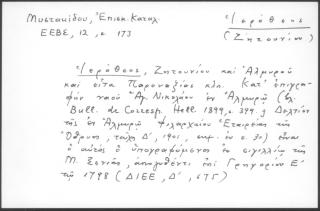 Μυστακίδου, Ἐπισκ. Καταλ.
ΕΕΒΣ, 12, σ. 173
Ἱερόθεος
(Ζητουνίου)
Ἱερόθεος, Ζητουνίου καὶ Ἁλμυροῦ
καὶ εἶτα Παροναξίας κλπ. Κατ' ἐπιγρα-
φὴν ναοῦ Ἁγ. Νικολάου ἐν Ἁλμυρῷ (βλ.
Bull. de Corresp. Hell. 1899, σ. 399 ᾳ Δελτίον
τῆς ἐν Ἁλμυρῷ φιλαρχαίου Ἑταιρείας τῆς
Ὄθρυος, τεῦχ. Δ', 1901, ἐν σ. 30) εἶναι
ὁ αὐτὸς ὁ ὑπογραφόμενος ἐν σιγιλλίῳ τῆς
Μ. Ξενιᾶς, ἀπολυθέντι ἐπὶ Γρηγορίου Ε'
τῷ 1798 (ΔΙΕΕ, Δ', 675)